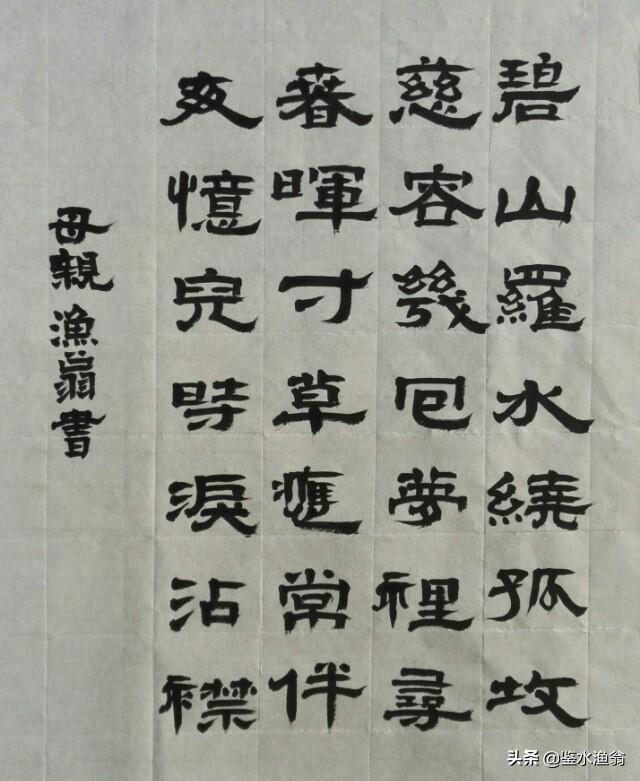 碧山羅水繞孤坟
慈容幾回夢裡尋
春暉寸草應常伴
更憶兒時淚沾襟
母親 漁翁書
头条 @鉴水渔翁